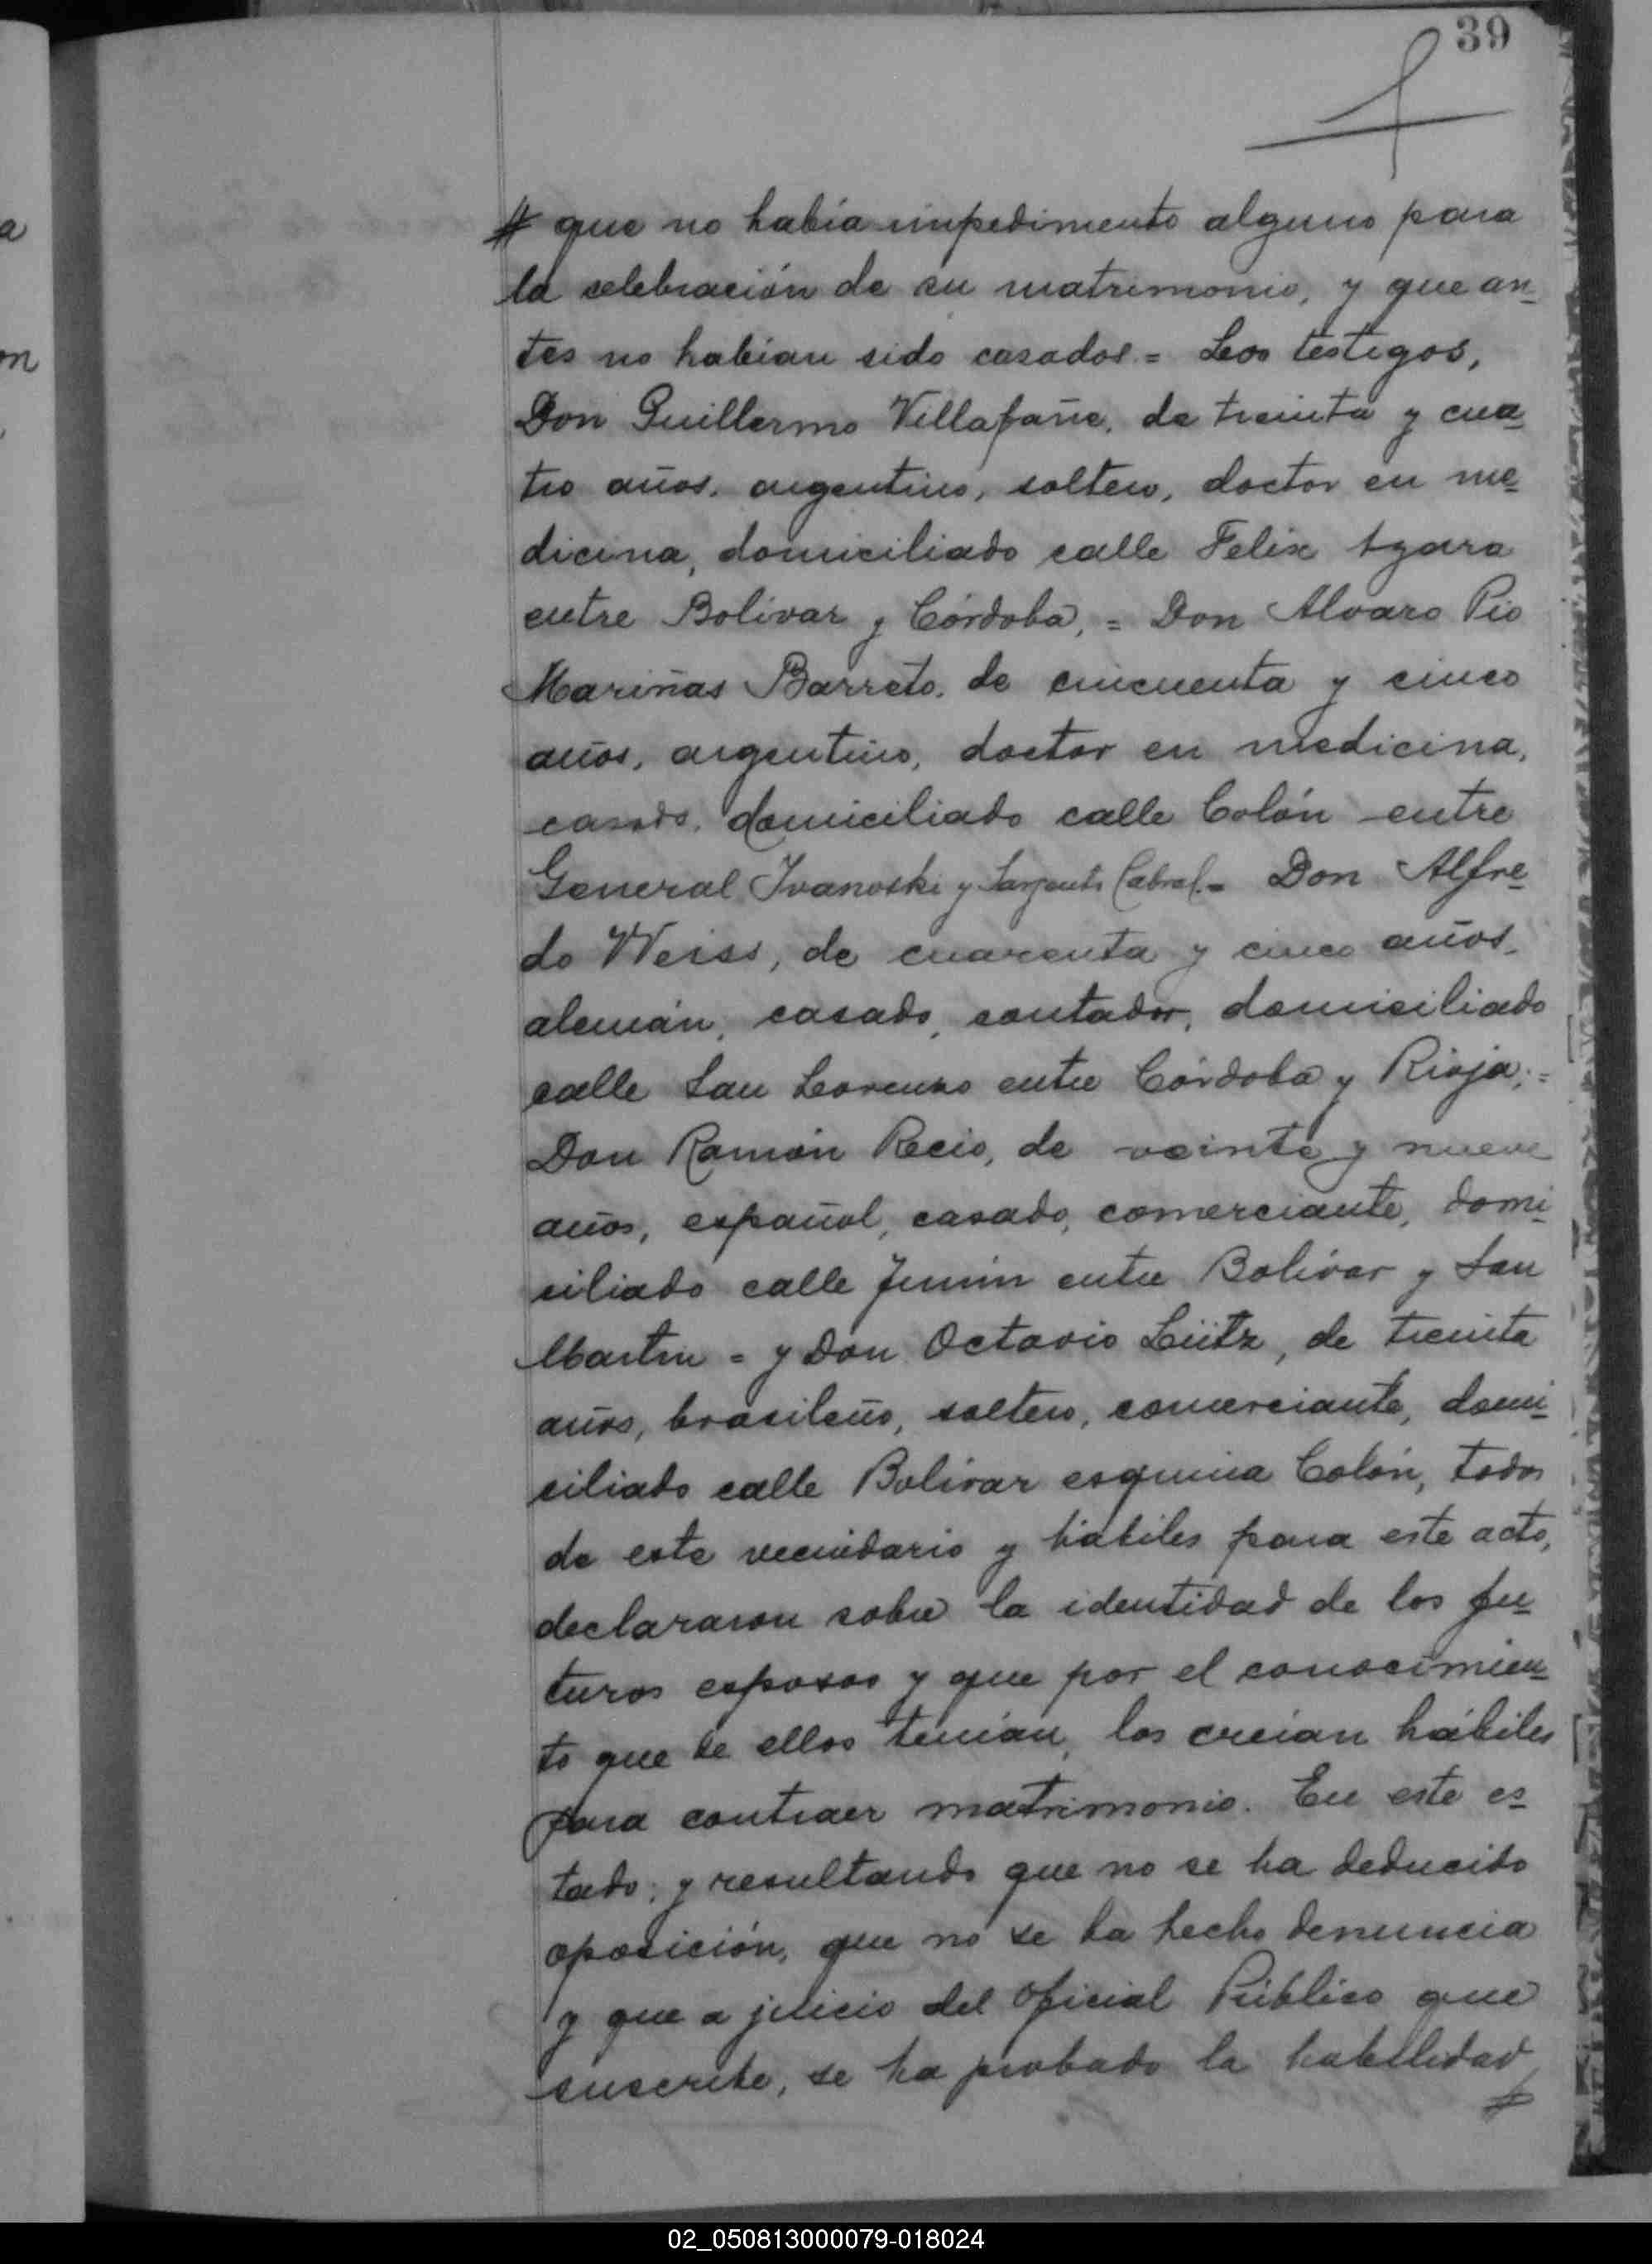 39
# que no había impedimento alguno para
la celebración de su matrimonio, y que an-
tes no habían sido casados. = Los testigos,
Don Guillermo Villafañe, de treinta y cua-
tro años, argentino, soltero, doctor en me-
dicina, domiciliado calle Felix Azara
entre Bolívar y Córdoba, = Don Alvaro Pio
Mariñas Barreto, de cincuenta y cinco
años, argentino, doctor en medicina,
casado, domiciliado calle Colón entre
General Ivanoski y Sargento Cabral = Don Alfre-
do Weiss, de cuarenta y cinco años,
alemán, casado, contador, domiciliado
calle San Lorenzo entre Córdoba y Rioja; =
Don Ramón Recio, de veinte y nueve
años, español, casado, comerciante, domi-
ciliado calle Junín entre Bolívar y San
Martin = y Don Octavio Lüitz, de treinta
años, brasileño, soltero, comerciante, domi-
ciliado calle Bolívar esquina Colón, todos
de este vecindario y hábiles para este acto,
declararon sobre la identidad de los fu-
turos esposos y que por el conocimien-
to que de ellos tenían, los creían hábiles
para contraer matrimonio. En este es-
tado, y resultando que no se ha deducido
oposición, que no se ha hecho denuncia
y que a juicio del Oficial Público que
suscribe, se ha probado la habilidad
#
a
on
02_050813000079-018024